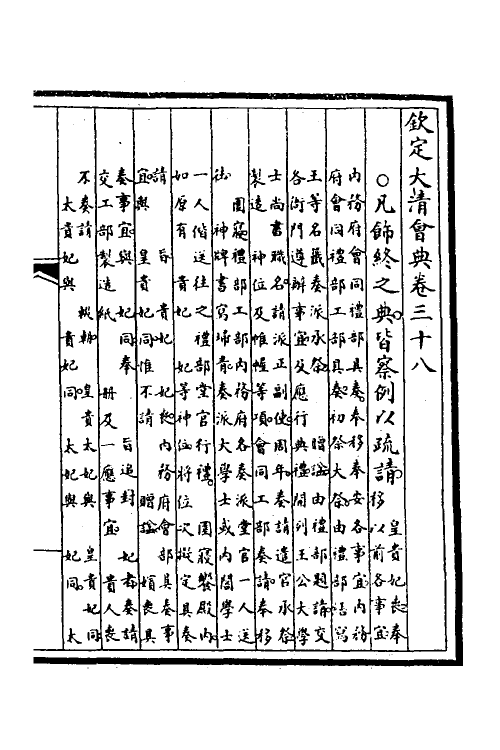 欽定大清會典卷三十八
○凡飾終之典皆察例以疏請
皇貴妃喪奉
移以前各事宜
內務府會同禮部工部具奏奉移奉安各事宜內務
府會同禮部工部具奏初祭大祭由禮部咨寫
王等名籤奏派承祭 贈諡由禮部題請交
各衙門遵辦事宜及應行典禮開列王公大學
士尚書職名請派正副使周年奏請遣官承祭
製造 神位及帷幄等項會同工部奏請奉移
園寢禮部工部內務府各奏派堂官一人送
神牌書寫埽青奏派大學士或內閣學士
一人偕送往之禮部堂官行禮 園寢饗殿內
如原有 貴妃 妃等神位將位次擬定具奏
請 旨貴妃 妃喪內務府會部具奏事
宜與 皇貴妃同惟不請 贈諡 嬪喪具
奏事宜與 妃同奉 旨追封 妃者奏請
交工部製造紙 冊及一應事宜 貴人喪
不奏請 輟朝 皇貴太妃與 皇貴妃同
太貴妃與 貴妃同 太妃與 妃同 太